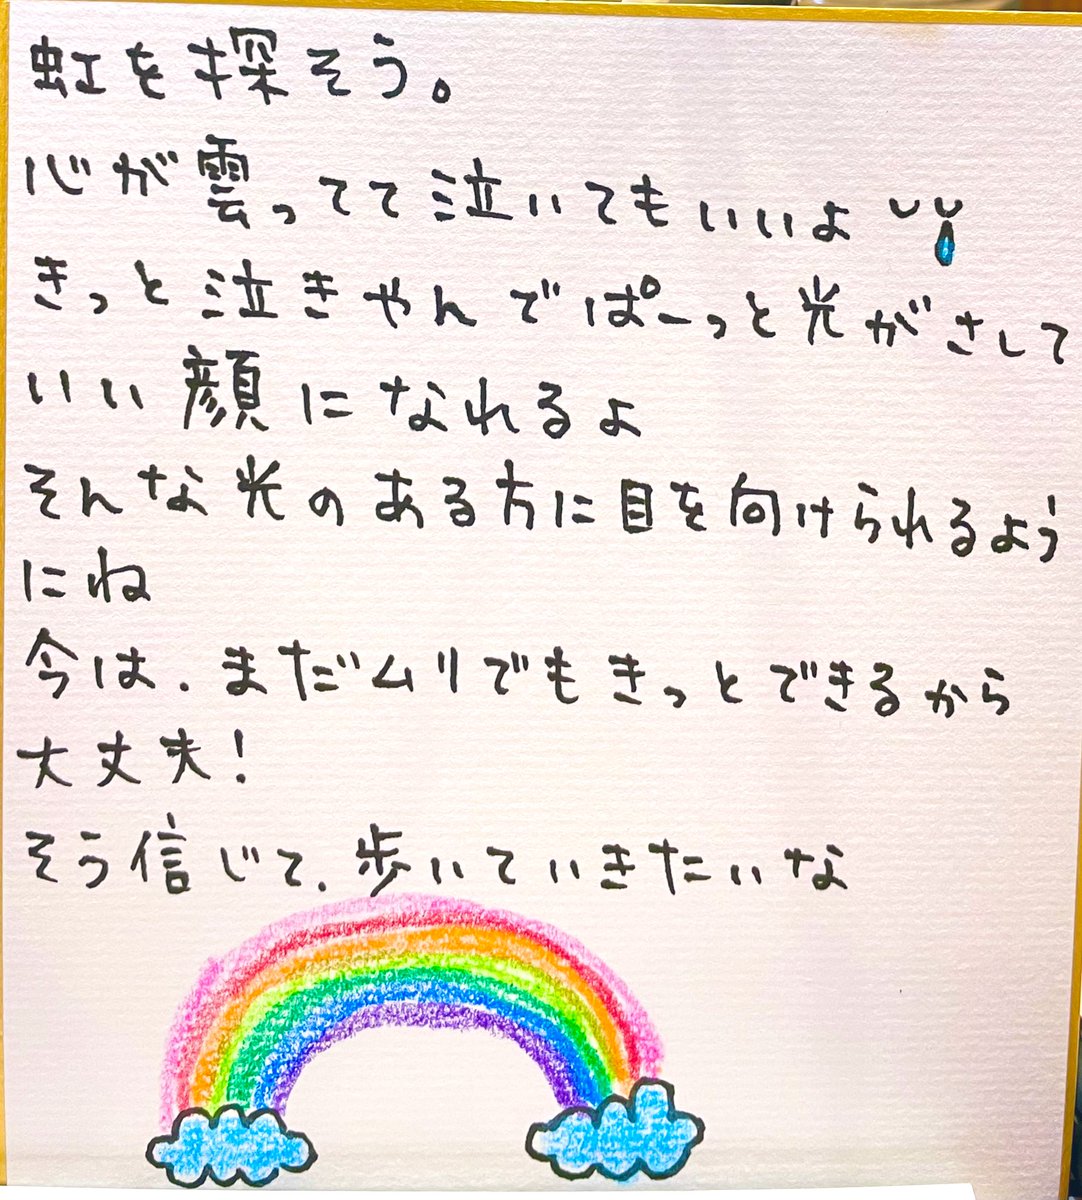 虹を探そう。
心が雲ってて泣いてもいいよ
きっと泣きやんでぱーっと光がさして
いい顔になれるよ
そんな光のある方に目を向けられるよう
にね
今は、まだムリでもきっとできるから
大丈夫!
そう信じて、歩いていきたいな